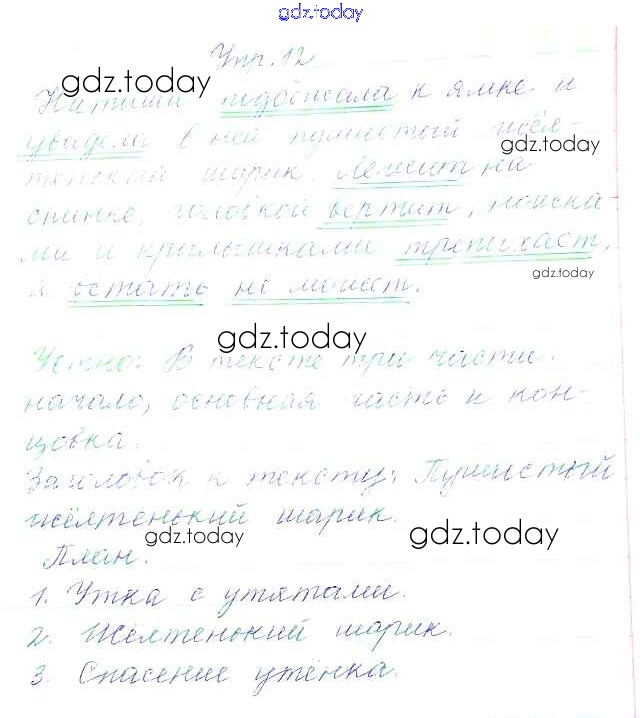 gdz.today
Упр. 12
gdz.today
Натиши подбежала к ямке и
увидела в ней пушистый жёл-
gdz.today
тенький шарик. Лежит на
спинке, головкой вертит, ножка
ми и крылышками трепыхает,
gdz.today
а встать не может.
gdz.today
Устно: В тексте три части.
начало, основная часть и кон-
цовка.
Заголовок к тексту: Пушистый
жёлтенький шарик.
gdz.today
gdz.today
План.
1. Утка с утятами.
2. Жёлтенький шарик.
3. Спасение утёнка.